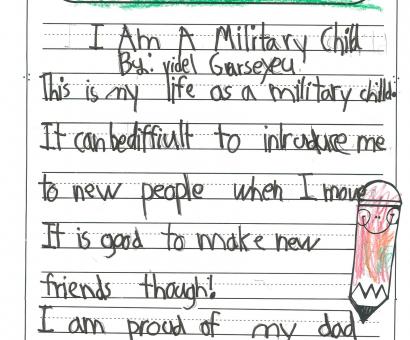 I Am A Military Child
By: yidel Garseyeu
This is my life as a military child.
It can be diffiult to introdure me
to new people when I move
It is good to make new
friends though!
I am proud of my dad